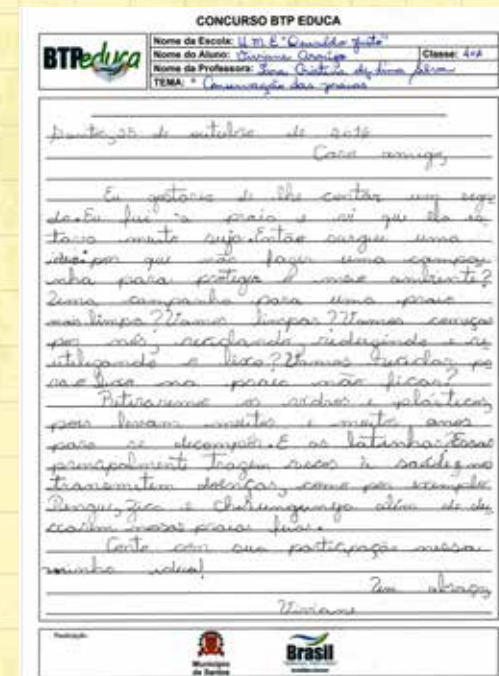 CONCURSO BTP EDUCA
BTPeduca
Nome da Escola: U M E "Oswaldo Justo"
Nome do Aluno: Viviane Araújo Classe: 4ºA
Nome da Professora: Cristina de Lima Silva
TEMA: " Conservação das praias
Santos, 25 de outubro de 2016
Caro amigo,
Eu gostaria de lhe contar um segre
do. Eu fui a praia e vi que ela es
tava muito suja. Então surgiu uma
ideia: por que não fazer uma campa
nha para proteger o meio ambiente?
Uma campanha para uma praia
mais limpa? Vamos limpar? Vamos começar
por nós, reciclando, reduzindo e re
utilizando o lixo? Vamos reciclar pa
ra o lixo na praia não ficar?
Retiraremos os vidros e plásticos,
pois levam muitos e muitos anos
para se decompor. E as latinhas? Essas
principalmente trazem riscos à saúde, e nos
transmitem doenças, como por exemplo:
Dengue, Zica e Chikungunya além de de
ixarem nossas praias feias.
Conto com sua participação nessa
minha ideia!
Um abraço,
Viviane
Realização:
Município
de Santos
Brasil